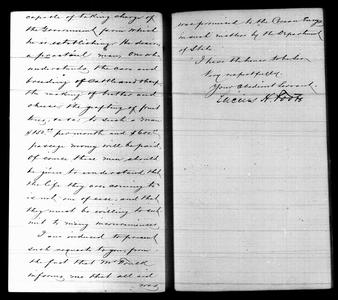 capable of taking charge of
the Government farm which
he is establishing. He desires
a practical man, one who
understands the care and
breeding of Cattle and sheep
the making of butter and
cheese, the grafting of fruit
trees, &c &c to such a man
per month and $600.00
passage money will be paid.
Of course these men should
be given to understand that
the life they are coming to
is not one of ease, and that
they must be willing to sub
mit to many inconveniences.
I am induced to present
such requests to you from
the fact that Mr Foulk
informs me that all aid
was
was promised to the Corean Embassy
in such matters by the Department
of State.
I have the honor to be Sir
Very respectfully,
Your obedient servant
Lucius H. Foote